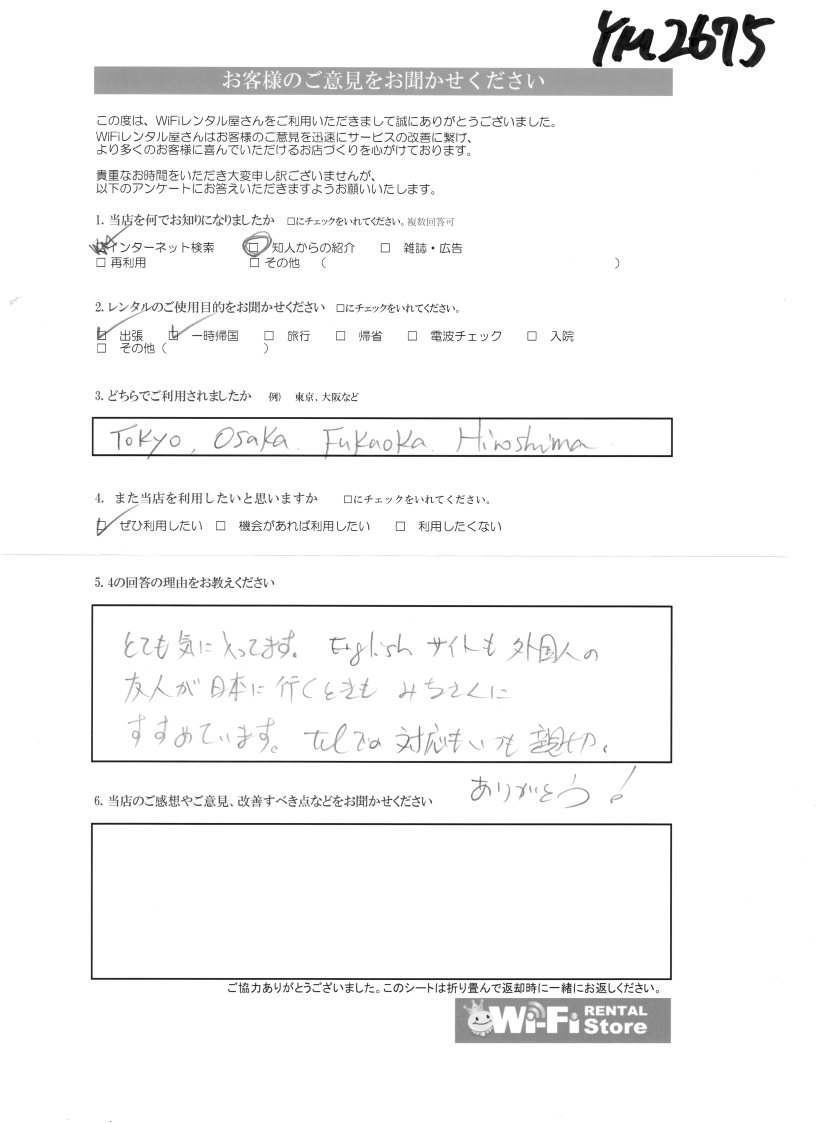 YM2675
お客様のご意見をお聞かせください
この度は、WiFiレンタル屋さんをご利用いただきまして誠にありがとうございました。
WiFiレンタル屋さんはお客様のご意見を迅速にサービスの改善に繋げ、
より多くのお客様に喜んでいただけるお店づくりを心がけております。
貴重なお時間をいただき大変申し訳ございませんが、
以下のアンケートにお答えいただきますようお願いいたします。
1. 当店を何でお知りになりましたか □にチェックをいれてください。複数回答可
インターネット検索 □ 知人からの紹介 □ 雑誌・広告
□ 再利用 □ その他 ( )
2. レンタルのご使用目的をお聞かせください □にチェックをいれてください。
□ 出張 □ 一時帰国 □ 旅行 □ 帰省 □ 電波チェック □ 入院
□ その他 ( )
3. どちらでご利用されましたか 例） 東京、大阪など
Tokyo, Osaka. Fukuoka. Hiroshima
4. また当店を利用したいと思いますか □にチェックをいれてください。
□ ぜひ利用したい □ 機会があれば利用したい □ 利用したくない
5. 4の回答の理由をお教えください
とても気に入ってます。 English サイトも 外国人の
友人が日本に行くときも
すすめています。 telでの対応もいつも親切。
ありがとう!
6. 当店のご感想やご意見、改善すべき点などをお聞かせください
ご協力ありがとうございました。このシートは折り畳んで返却時に一緒にお返しください。
Wi-Fi RENTAL Store